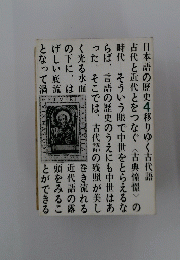 日本語の歴史4移りゆく古代語
古代と近代とをつなぐ《古典憧憬》の
時代 そういう形で中世をとらえるな
らば、言語の歴史のうえにも中世はあ
った。そこでは、古代語の残照が美し
く光る水面 巻き流れる
の下に、は 近代語の露
げしい底流 頭をみるこ
となって渦 とができる